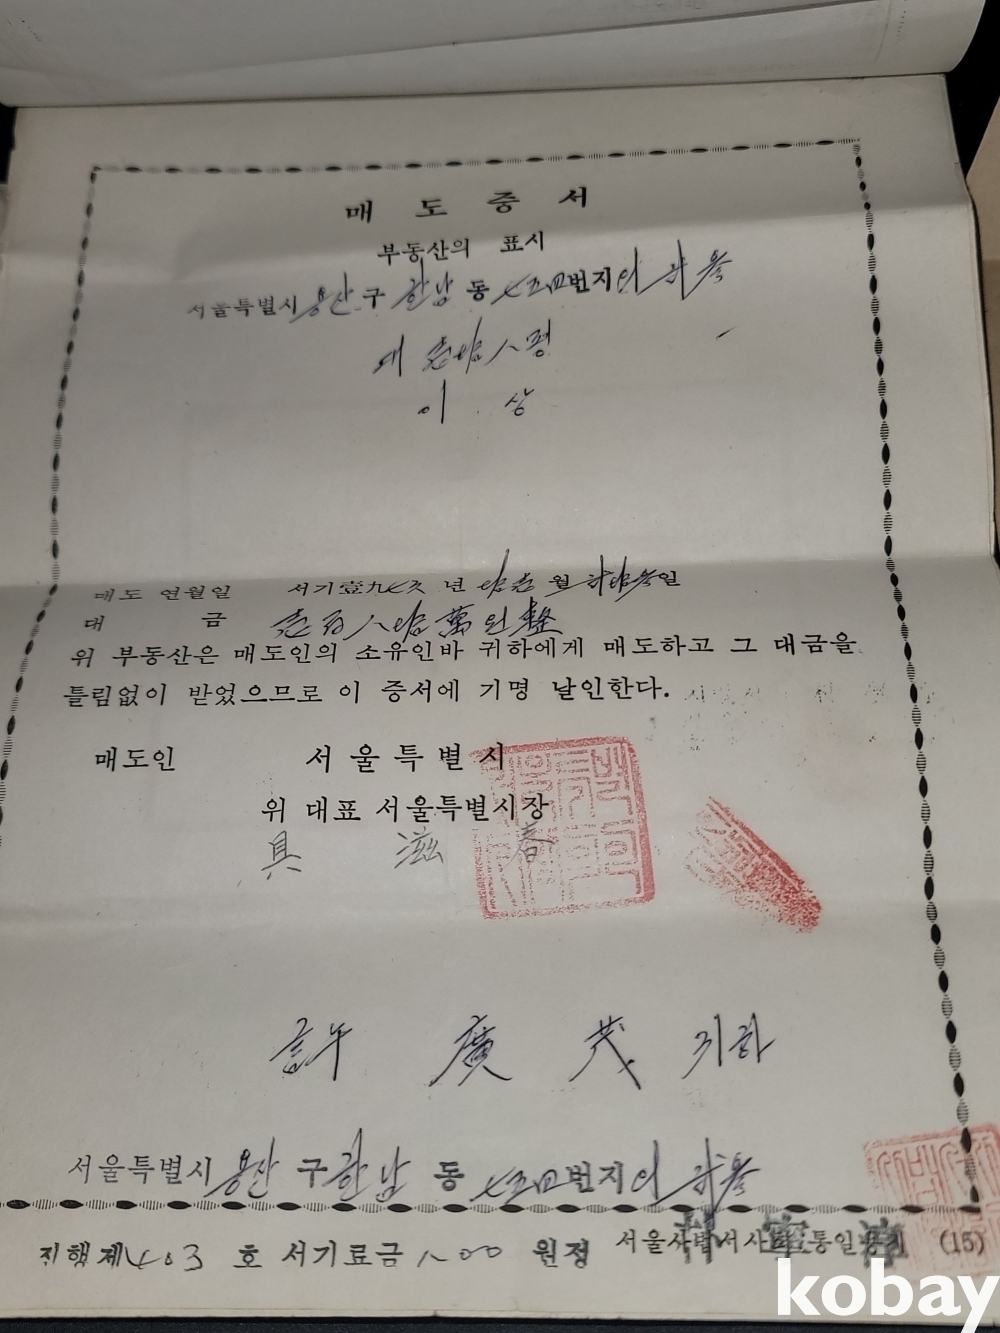 매 도 증 서
부동산의 표시
서울특별시 용산 구 한남 동 七五四번지의
대 壹拾八평
이 상
매도 연월일 서기壹九七 년 拾壹 월 일
대 금 壹百八拾萬원整
위 부동산은 매도인의 소유인바 귀하에게 매도하고 그 대금을
틀림없이 받었으므로 이 증서에 기명 날인한다.
매도인 서울특별시
위 대표 서울특별시장
具 滋 春
許 廣 茂 귀하
서울특별시 용산 구 한남 동 七五四번지의
지행제403 호 서기료금 원정 (15)
kobay